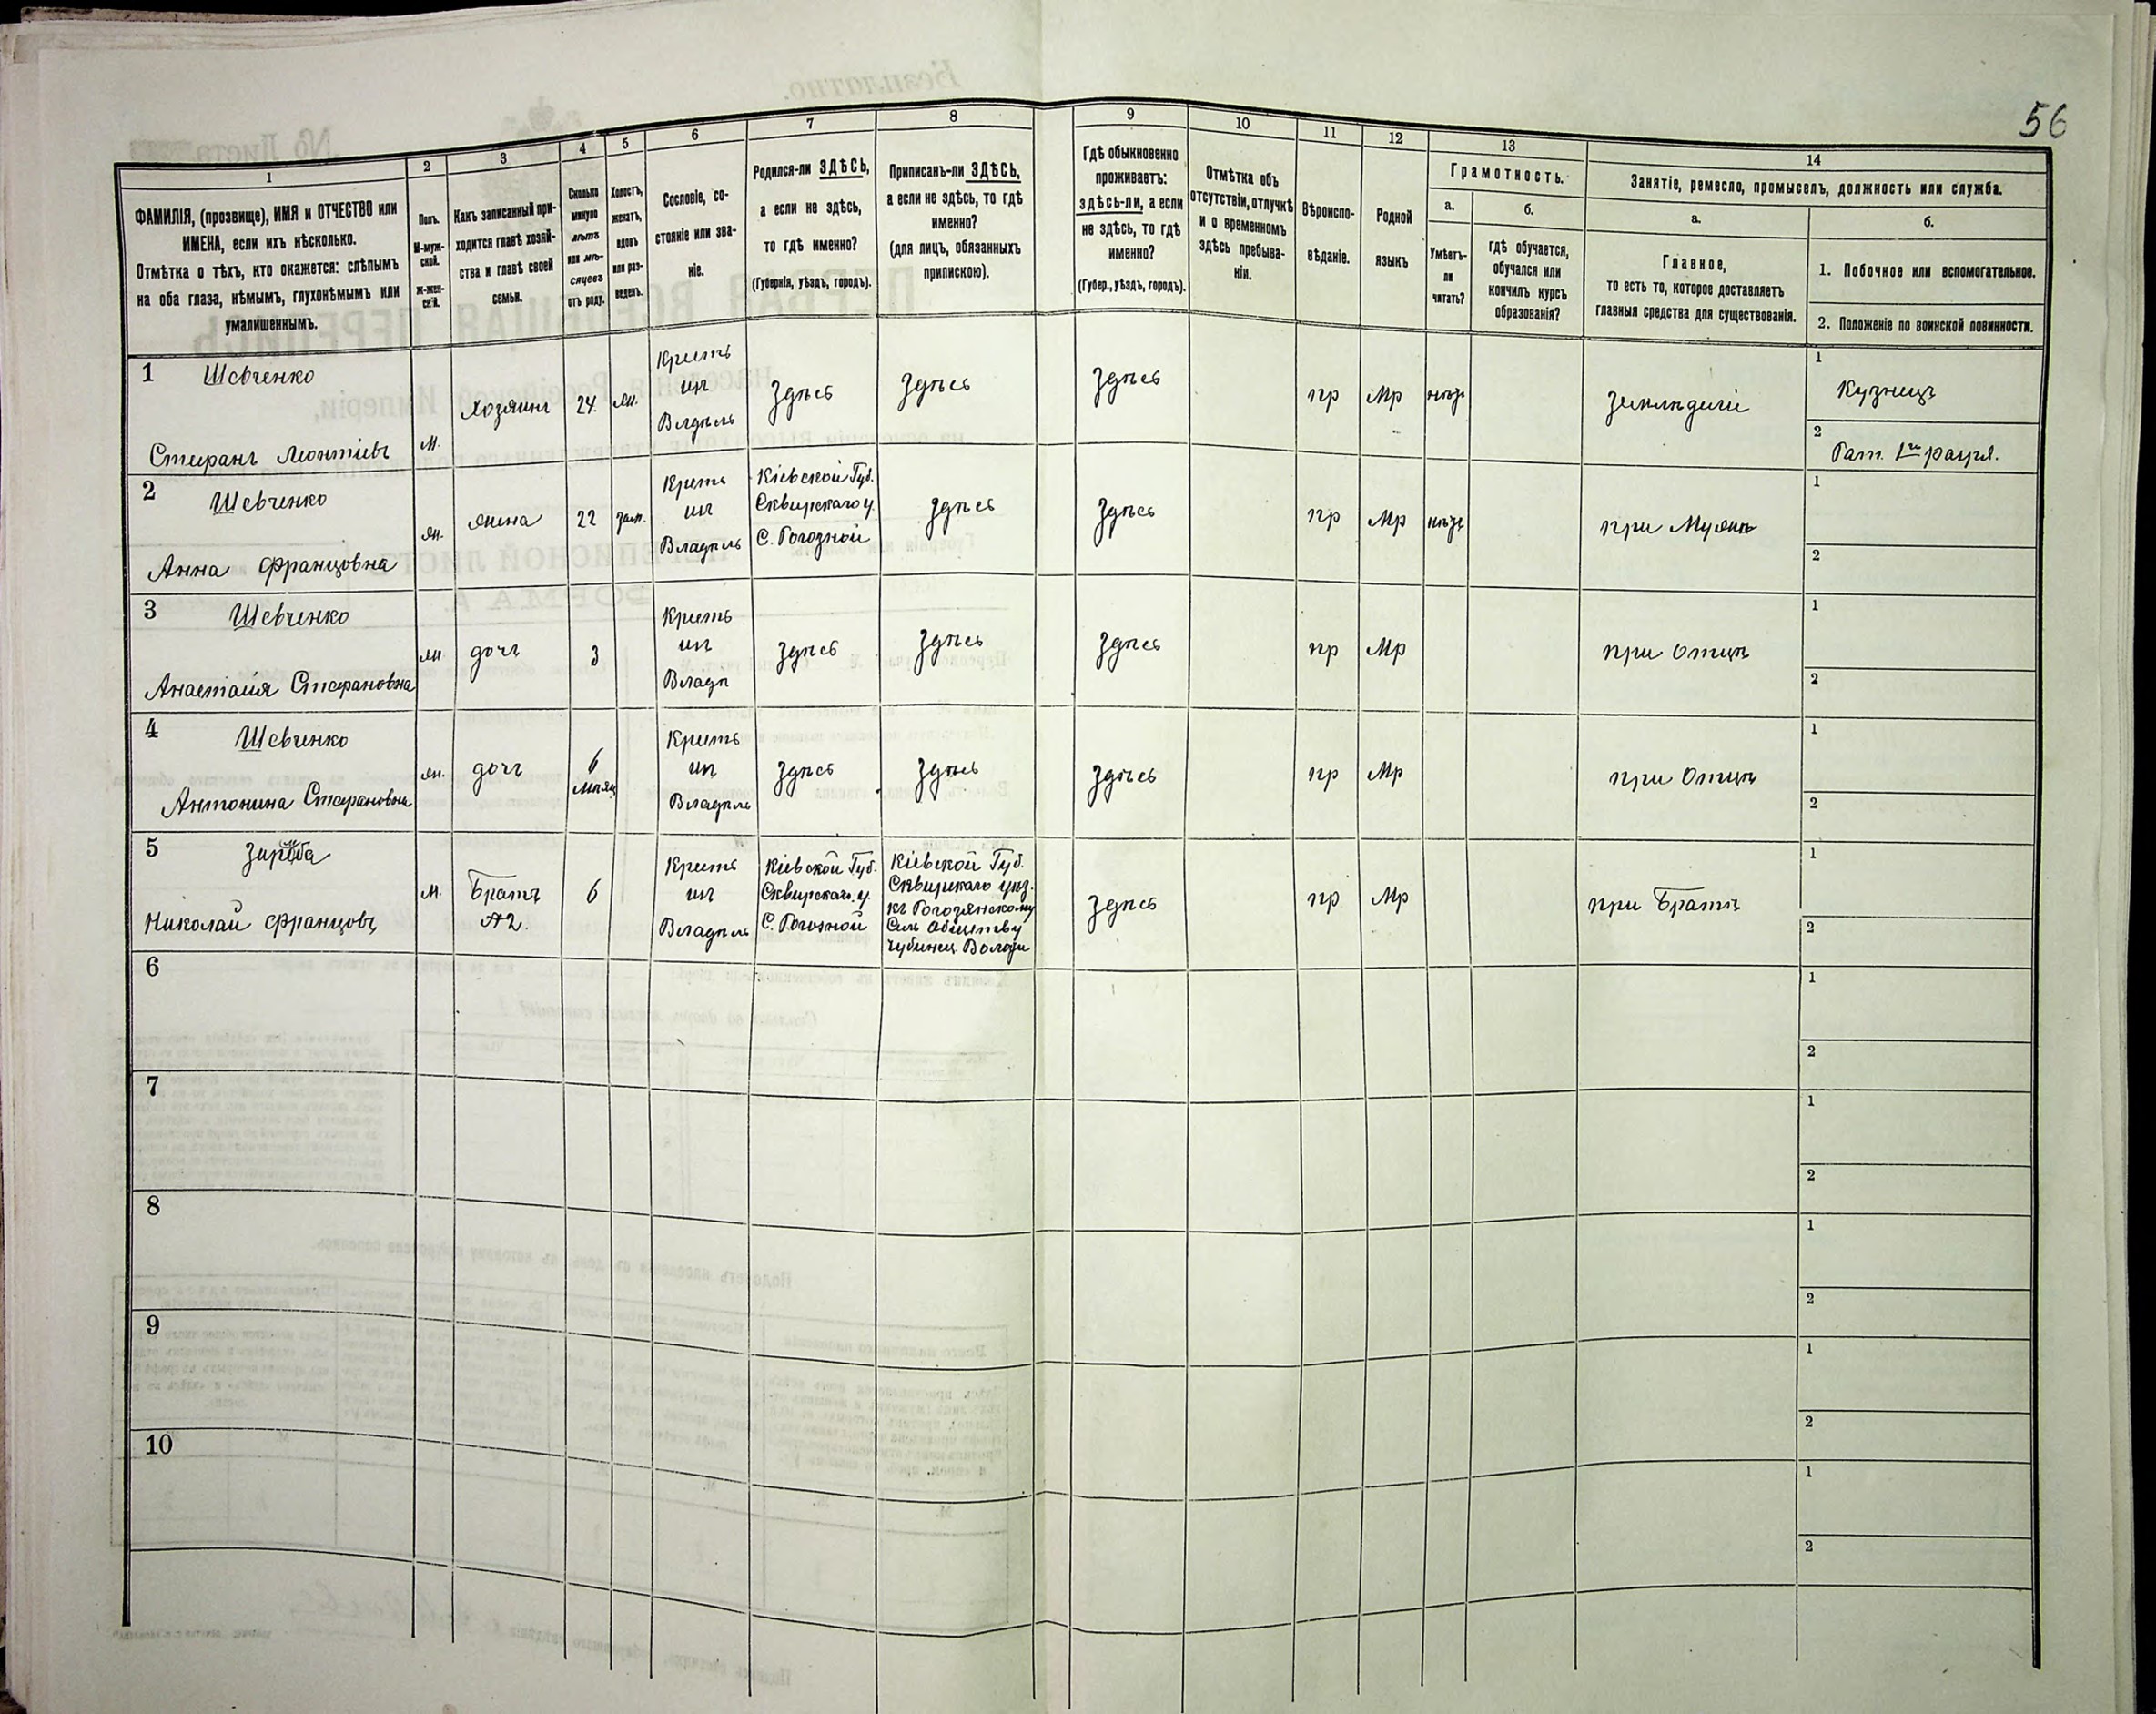 56
1
ФАМИЛІЯ, (прозвище), ИМЯ и ОТЧЕСТВО или
ИМЕНА, если ихъ нѣсколько.
Отмѣтка о тѣхъ, кто окажется: слѣпымъ
на оба глаза, нѣмымъ, глухонѣмымъ или
умалишеннымъ.
2
Полъ.
М-муж-
ской.
Ж-жен-
скій.
3
Какъ записанный при-
ходится главѣ хозяй-
ства и главѣ своей
семьи.
4
Сколько
минуло
лѣтъ
или мѣ-
сяцевъ
отъ роду.
5
Холостъ,
женатъ,
вдовъ
или раз-
веденъ.
6
Сословіе, со-
стояніе или зва-
ніе.
7
Родился-ли ЗДѢСЬ,
а если не здѣсь,
то гдѣ именно?
(Губернія, уѣздъ, городъ).
8
Приписанъ-ли ЗДѢСЬ,
а если не здѣсь, то гдѣ
именно?
(для лицъ, обязанныхъ
припискою).
9
Гдѣ обыкновенно
проживаетъ:
здѣсь-ли, а если
не здѣсь, то гдѣ
именно?
(Губер., уѣздъ, городъ).
10
Отмѣтка объ
отсутствіи, отлучкѣ
и о временномъ
здѣсь пребыва-
ніи.
11
Вѣроиспо-
вѣданіе.
12
Родной
языкъ
13
Грамотность.
а.
Умѣетъ-
ли
читать?
б.
гдѣ обучается,
обучался или
кончилъ курсъ
образованія?
14
Занятіе, ремесло, промыселъ, должность или служба.
а.
Главное,
то есть то, которое доставляетъ
главныя средства для существованія.
б.
1. Побочное или вспомогательное.
2. Положеніе по воинской повинности.
1
Шевченко
Стефанъ Леонтіевъ
м.
хозяинъ
24.
жн.
Крестъ
изъ
Владѣль
Здѣсь
Здѣсь
Здѣсь
пр
Мр
нѣтъ
земледѣліе
1
Кузнецъ
2
Рат. 1го разря.
2
Шевченко
Анна Францовна
жн.
жена
22
зам.
Крестъ
изъ
Владѣль
Кіевской Губ.
Сквирскаго у.
С. Рогозной
Здѣсь
Здѣсь
пр
Мр
нѣтъ
при Мужѣ
1
2
3
Шевченко
Анастасія Стефановна
жн
дочъ
3
Крестъ
изъ
Владѣ
Здѣсь
Здѣсь
Здѣсь
пр
Мр
при Отцѣ
1
2
4
Шевченко
Антонина Стефановна
жн.
дочъ
6
мѣсяц
Крестъ
изъ
Владѣль
Здѣсь
Здѣсь
Здѣсь
пр
Мр
при Отцѣ
1
2
5
Николай Францовъ
м.
Братъ
6
Крестъ
изъ
Владѣль
Кіевской Губ.
Сквирскаго у.
С. Рогозной
Кіевской Губ.
Сквирскаго уѣз.
къ Рогозянскому
Сель Обществу
Чубинец. Волости
Здѣсь
пр
Мр
при Братѣ
1
2
6
1
2
7
1
2
8
1
2
9
1
2
10
1
2